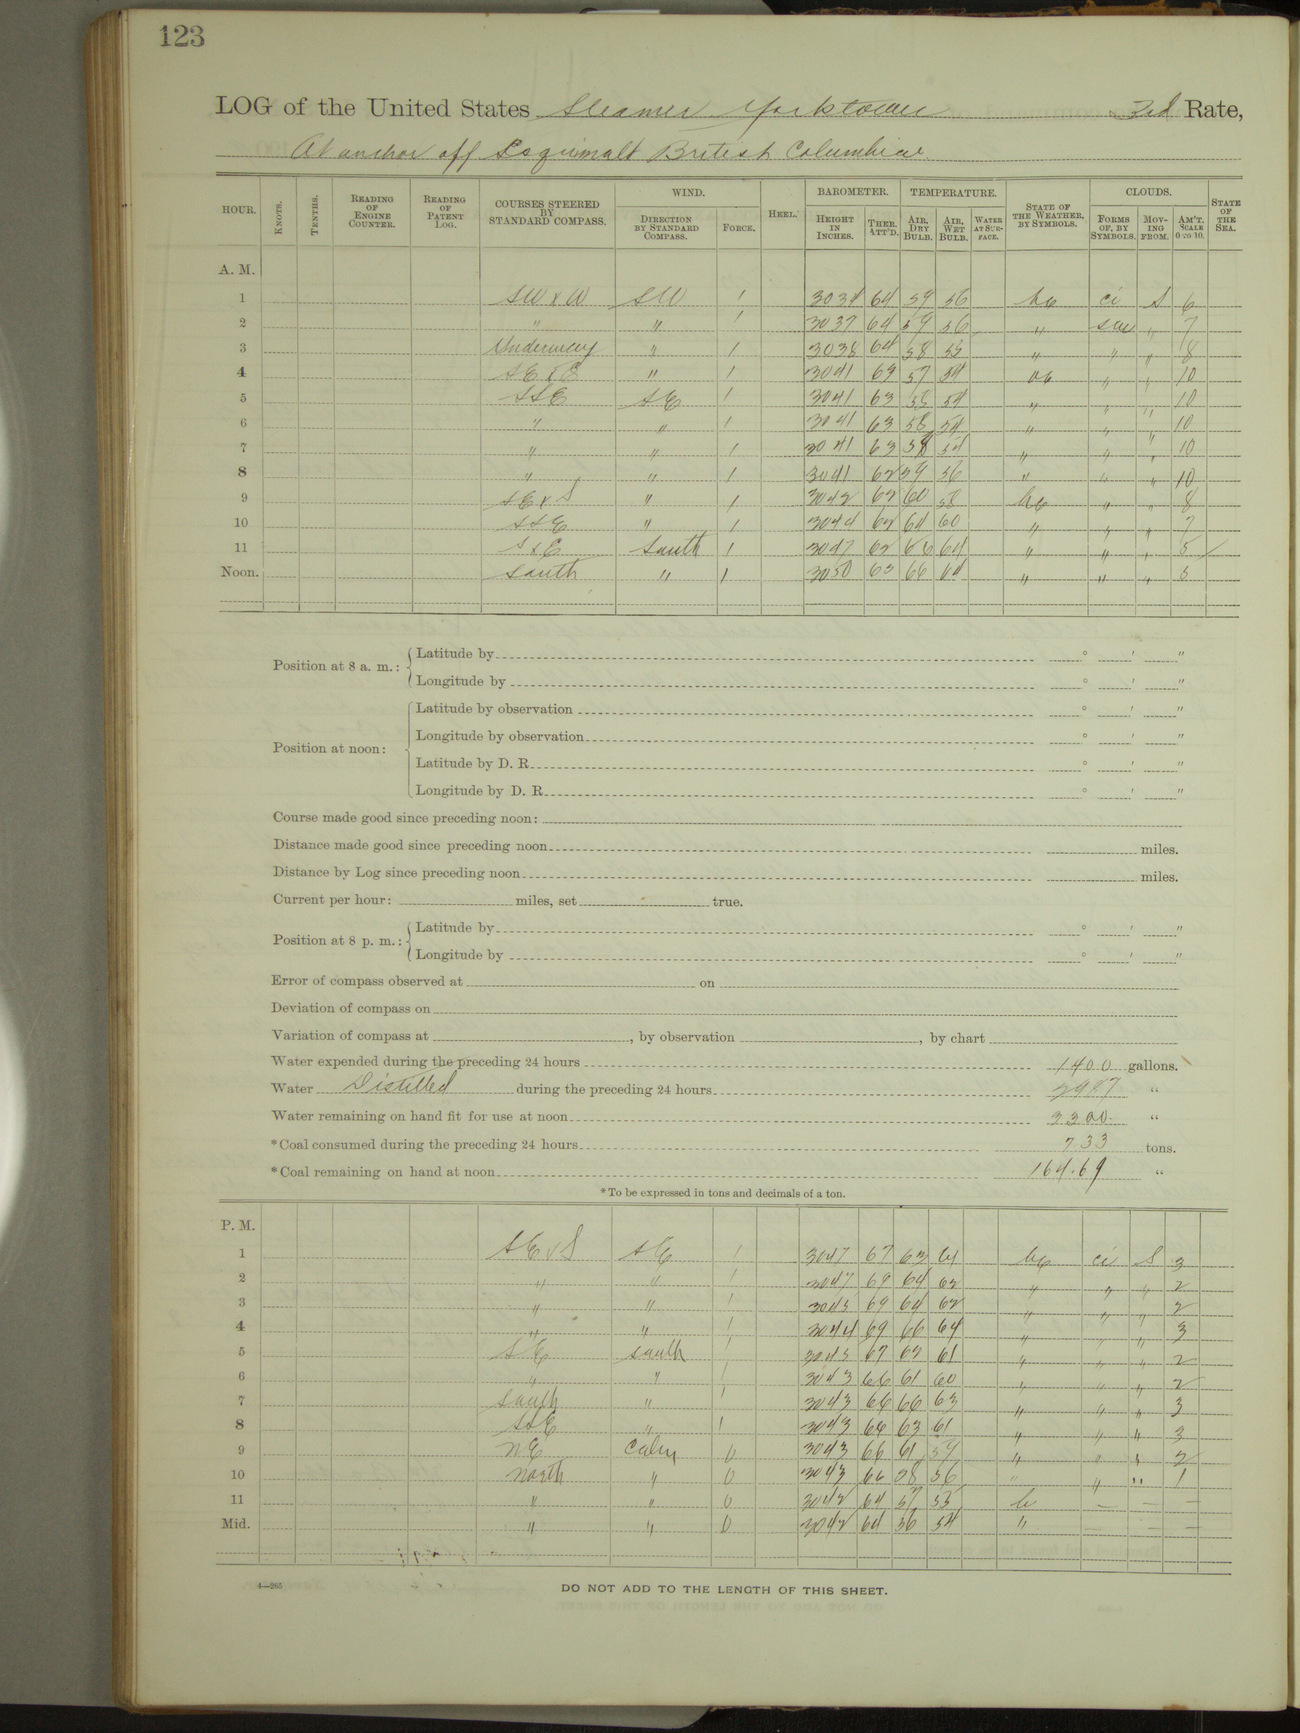 123
LOG of the United States Steamer Yorktown 3rd Rate,
At anchor off Esquimalt British Columbia.
HOUR. KNOTS. TENTHS. READING OF ENGINE COUNTER. READING OF PATENT LOG. COURSES STEERED BY STANDARD COMPASS. WIND. DIRECTION BY STANDARD COMPASS. FORCE. HEEL. BAROMETER. HEIGHT IN INCHES. THER. ATT'D. TEMPERATURE. AIR, DRY BULB. AIR, WET BULB. WATER AT SURFACE. STATE OF THE WEATHER, BY SYMBOLS. CLOUDS. FORMS OF, BY SYMBOLS. MOVING FROM. AM'T. SCALE 0 TO 10. STATE OF THE SEA.
A. M.
1 SW x W SW 1 3034 64 59 56 bc ci S 6
2 " " 1 3037 64 59 56 " " 7
3 Underway " 1 3038 64 58 55 " " " 8
4 SE x E " 1 3041 64 57 54 oc " " 10
5 SSE SE 1 3041 63 58 54 " " " 10
6 " " 1 3041 63 58 54 " " " 10
7 " " 1 3041 63 58 54 " " " 10
8 " " 1 3041 62 59 56 " " " 10
9 SE x S " 1 3042 62 60 58 bc " " 8
10 SSE " 1 3044 62 64 60 " " " 7
11 S x E South 1 3047 62 66 64 " " " 5
Noon. South " 1 3050 63 66 64 " " " 5
Position at 8 a. m.: Latitude by ° ' "
Longitude by ° ' "
Position at noon: Latitude by observation ° ' "
Longitude by observation ° ' "
Latitude by D. R. ° ' "
Longitude by D. R. ° ' "
Course made good since preceding noon:
Distance made good since preceding noon miles.
Distance by Log since preceding noon miles.
Current per hour: miles, set true.
Position at 8 p. m.: Latitude by ° ' "
Longitude by ° ' "
Error of compass observed at on
Deviation of compass on
Variation of compass at , by observation , by chart
Water expended during the preceding 24 hours 1400 gallons.
Water Distilled during the preceding 24 hours 2987 "
Water remaining on hand fit for use at noon 3300 "
*Coal consumed during the preceding 24 hours 7 33 tons.
*Coal remaining on hand at noon 164.69 "
*To be expressed in tons and decimals of a ton.
P. M.
1 SE x S SE 1 3047 67 63 61 bc ci S 3
2 " " 1 3047 69 64 62 " " " 2
3 " " 1 3045 69 64 62 " " " 2
4 " " 1 3044 69 66 64 " " " 3
5 SE South 1 3043 67 62 61 " " " 2
6 " " 1 3043 66 61 60 " " " 2
7 South " 1 3043 66 66 63 " " " 3
8 SSE " 1 3043 66 63 61 " " " 3
9 NE Calm 0 3043 66 61 59 " " " 2
10 North " 0 3043 66 58 56 " " " 1
11 " " 0 3042 64 57 55 b — — —
Mid. " " 0 3042 64 56 54 " — — —
4—265
DO NOT ADD TO THE LENGTH OF THIS SHEET.